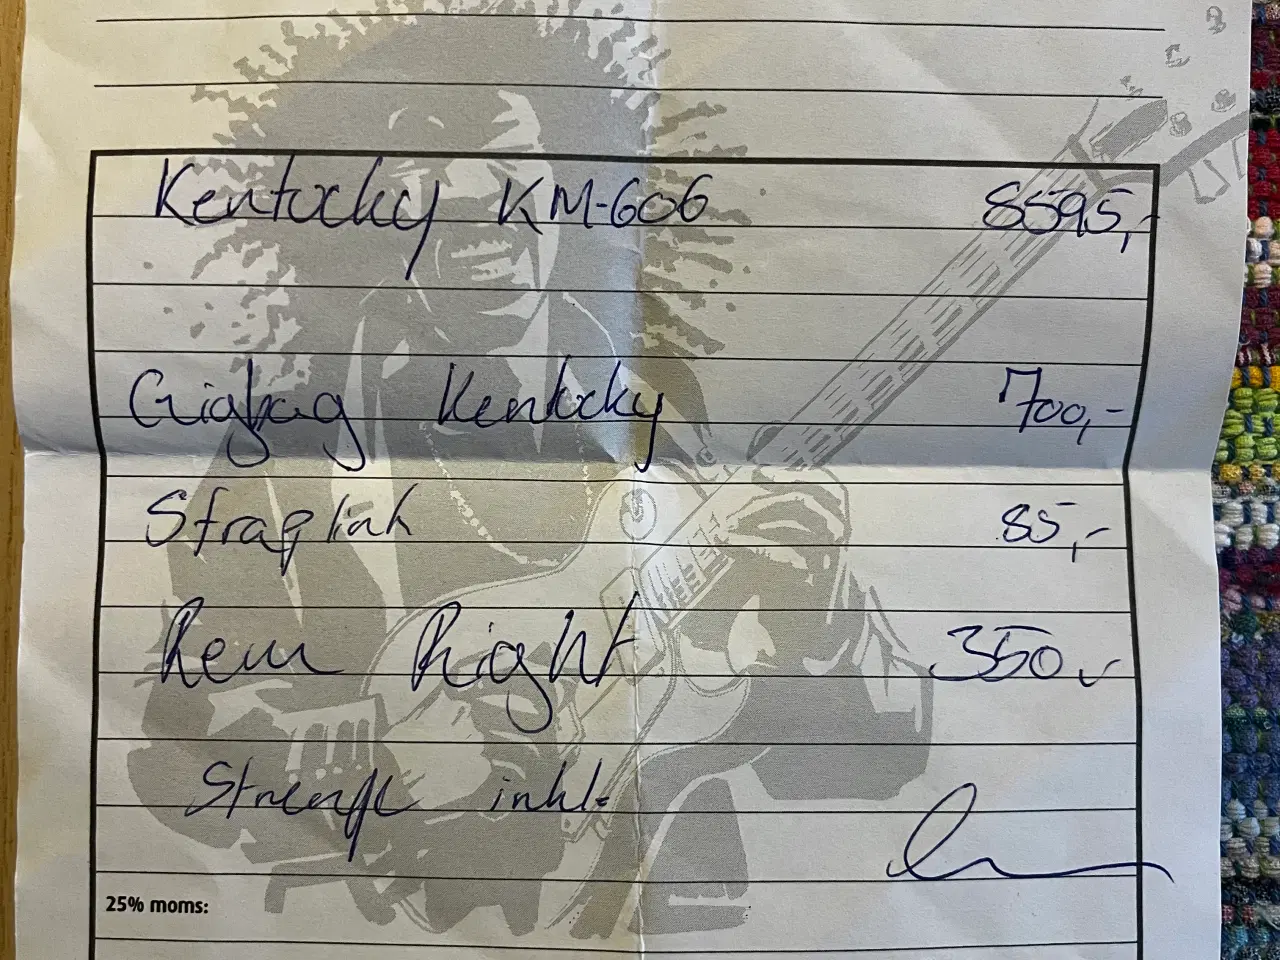 Kentucky KM-606 8595,-
Gigbag Kentucky 700,-
Straplink 85,-
Rem Right 350,-
Strenge inkl.
25% moms: